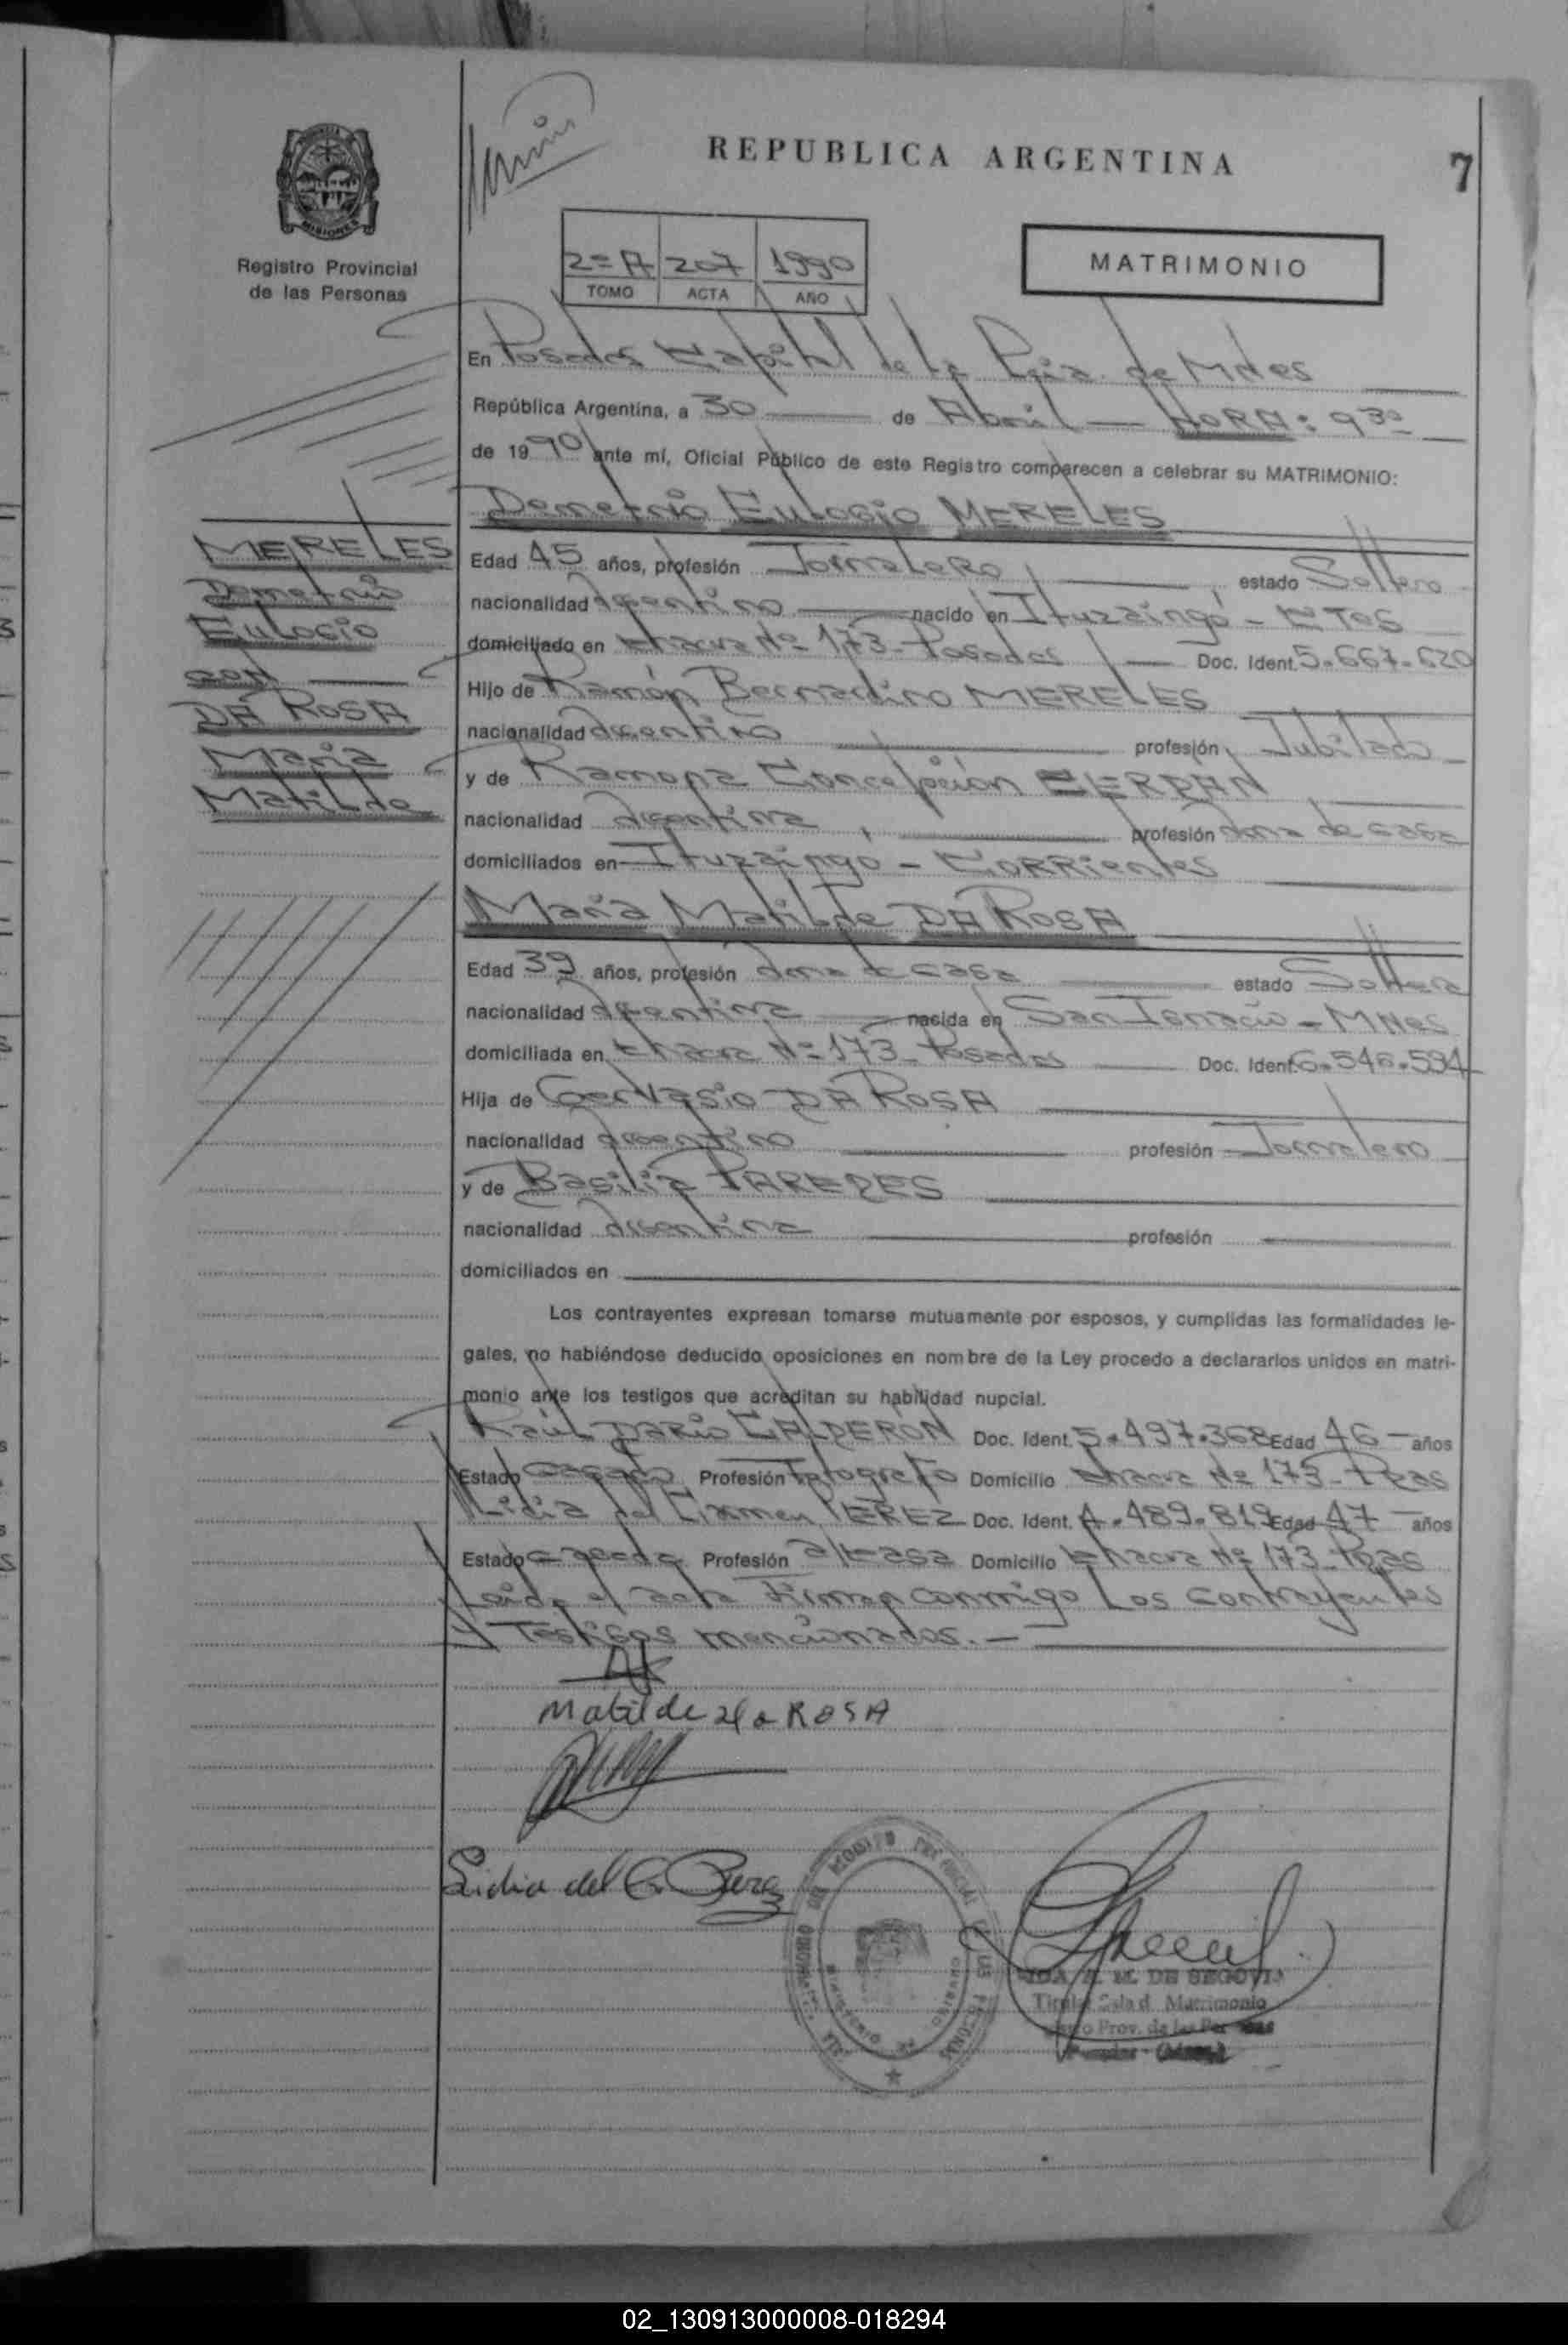 REPUBLICA ARGENTINA
7
MISIONES
Registro Provincial
de las Personas
2º A 207 1990
TOMO ACTA AÑO
MATRIMONIO
En Posadas Capital de la Pcia. de Mnes
República Argentina, a 30 de Abril HORA: 9 30
de 1990 ante mí, Oficial Público de este Registro comparecen a celebrar su MATRIMONIO:
Demetrio Eulogio MERELES
MERELES
Demetrio
Eulogio
con
DA ROSA
Maria
Matilde
Edad 45 años, profesión Jornalero, estado Soltero
nacionalidad Argentino nacido en Ituzaingó - CTES
domiciliado en Chacra Nº 173 - Posadas Doc. Ident. 5.667.620
Hijo de Ramón Bernardino MERELES
nacionalidad Argentino profesión Jubilado
y de Ramona Concepción CERDAN
nacionalidad Argentina, profesión dona de casa
domiciliados en Ituzaingo - CORRientes
Maria Matilde DA ROSA
Edad 39 años, profesión dona de casa estado Soltera
nacionalidad Argentina nacida en San Ignacio - MNes
domiciliada en Chacra Nº 173 - Posadas Doc. Ident. 6.546.594
Hija de Gervasio DA ROSA
nacionalidad Argentino profesión Jornalero
y de Basilia PAREDES
nacionalidad Argentina profesión
domiciliados en
Los contrayentes expresan tomarse mutuamente por esposos, y cumplidas las formalidades le-
gales, no habiéndose deducido oposiciones en nombre de la Ley procedo a declararlos unidos en matri-
monio ante los testigos que acreditan su habilidad nupcial.
Raúl DARIO CALDERON Doc. Ident. 5.497.368 Edad 46 - años
Estado Casado Profesión Fotografo Domicilio Chacra Nº 173 - Pdas
Lidia del Carmen PEREZ Doc. Ident. 4.489.819 Edad 47 - años
Estado casada Profesión a/casa Domicilio Chacra Nº 173 - Pdas
Leida el acta Firman conmigo Los contrayentes
y Testigos mencionados. -
Matilde da ROSA
Lidia del C. Perez
M. DE SEGOVIA
Titular Sala d Matrimonio
Prov. de las
02_130913000008-018294